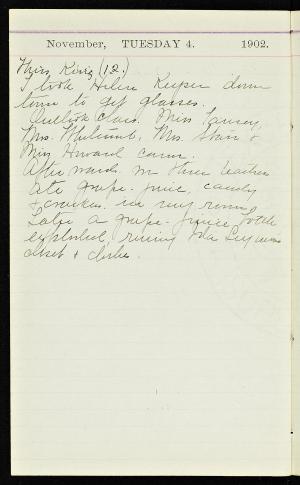 November, TUESDAY 4. 1902.
Miss King (12.)
I took Helen Keeper down
town to get glasses.
Outlook Class. Miss
Mrs. Mrs. Starr &
Miss Howard came.
Afterwards we three teachers
ate grape-juice, candy
& crackers in my room
Later a grape-juice bottle
exploded, ruining Ida
closet & clothes.